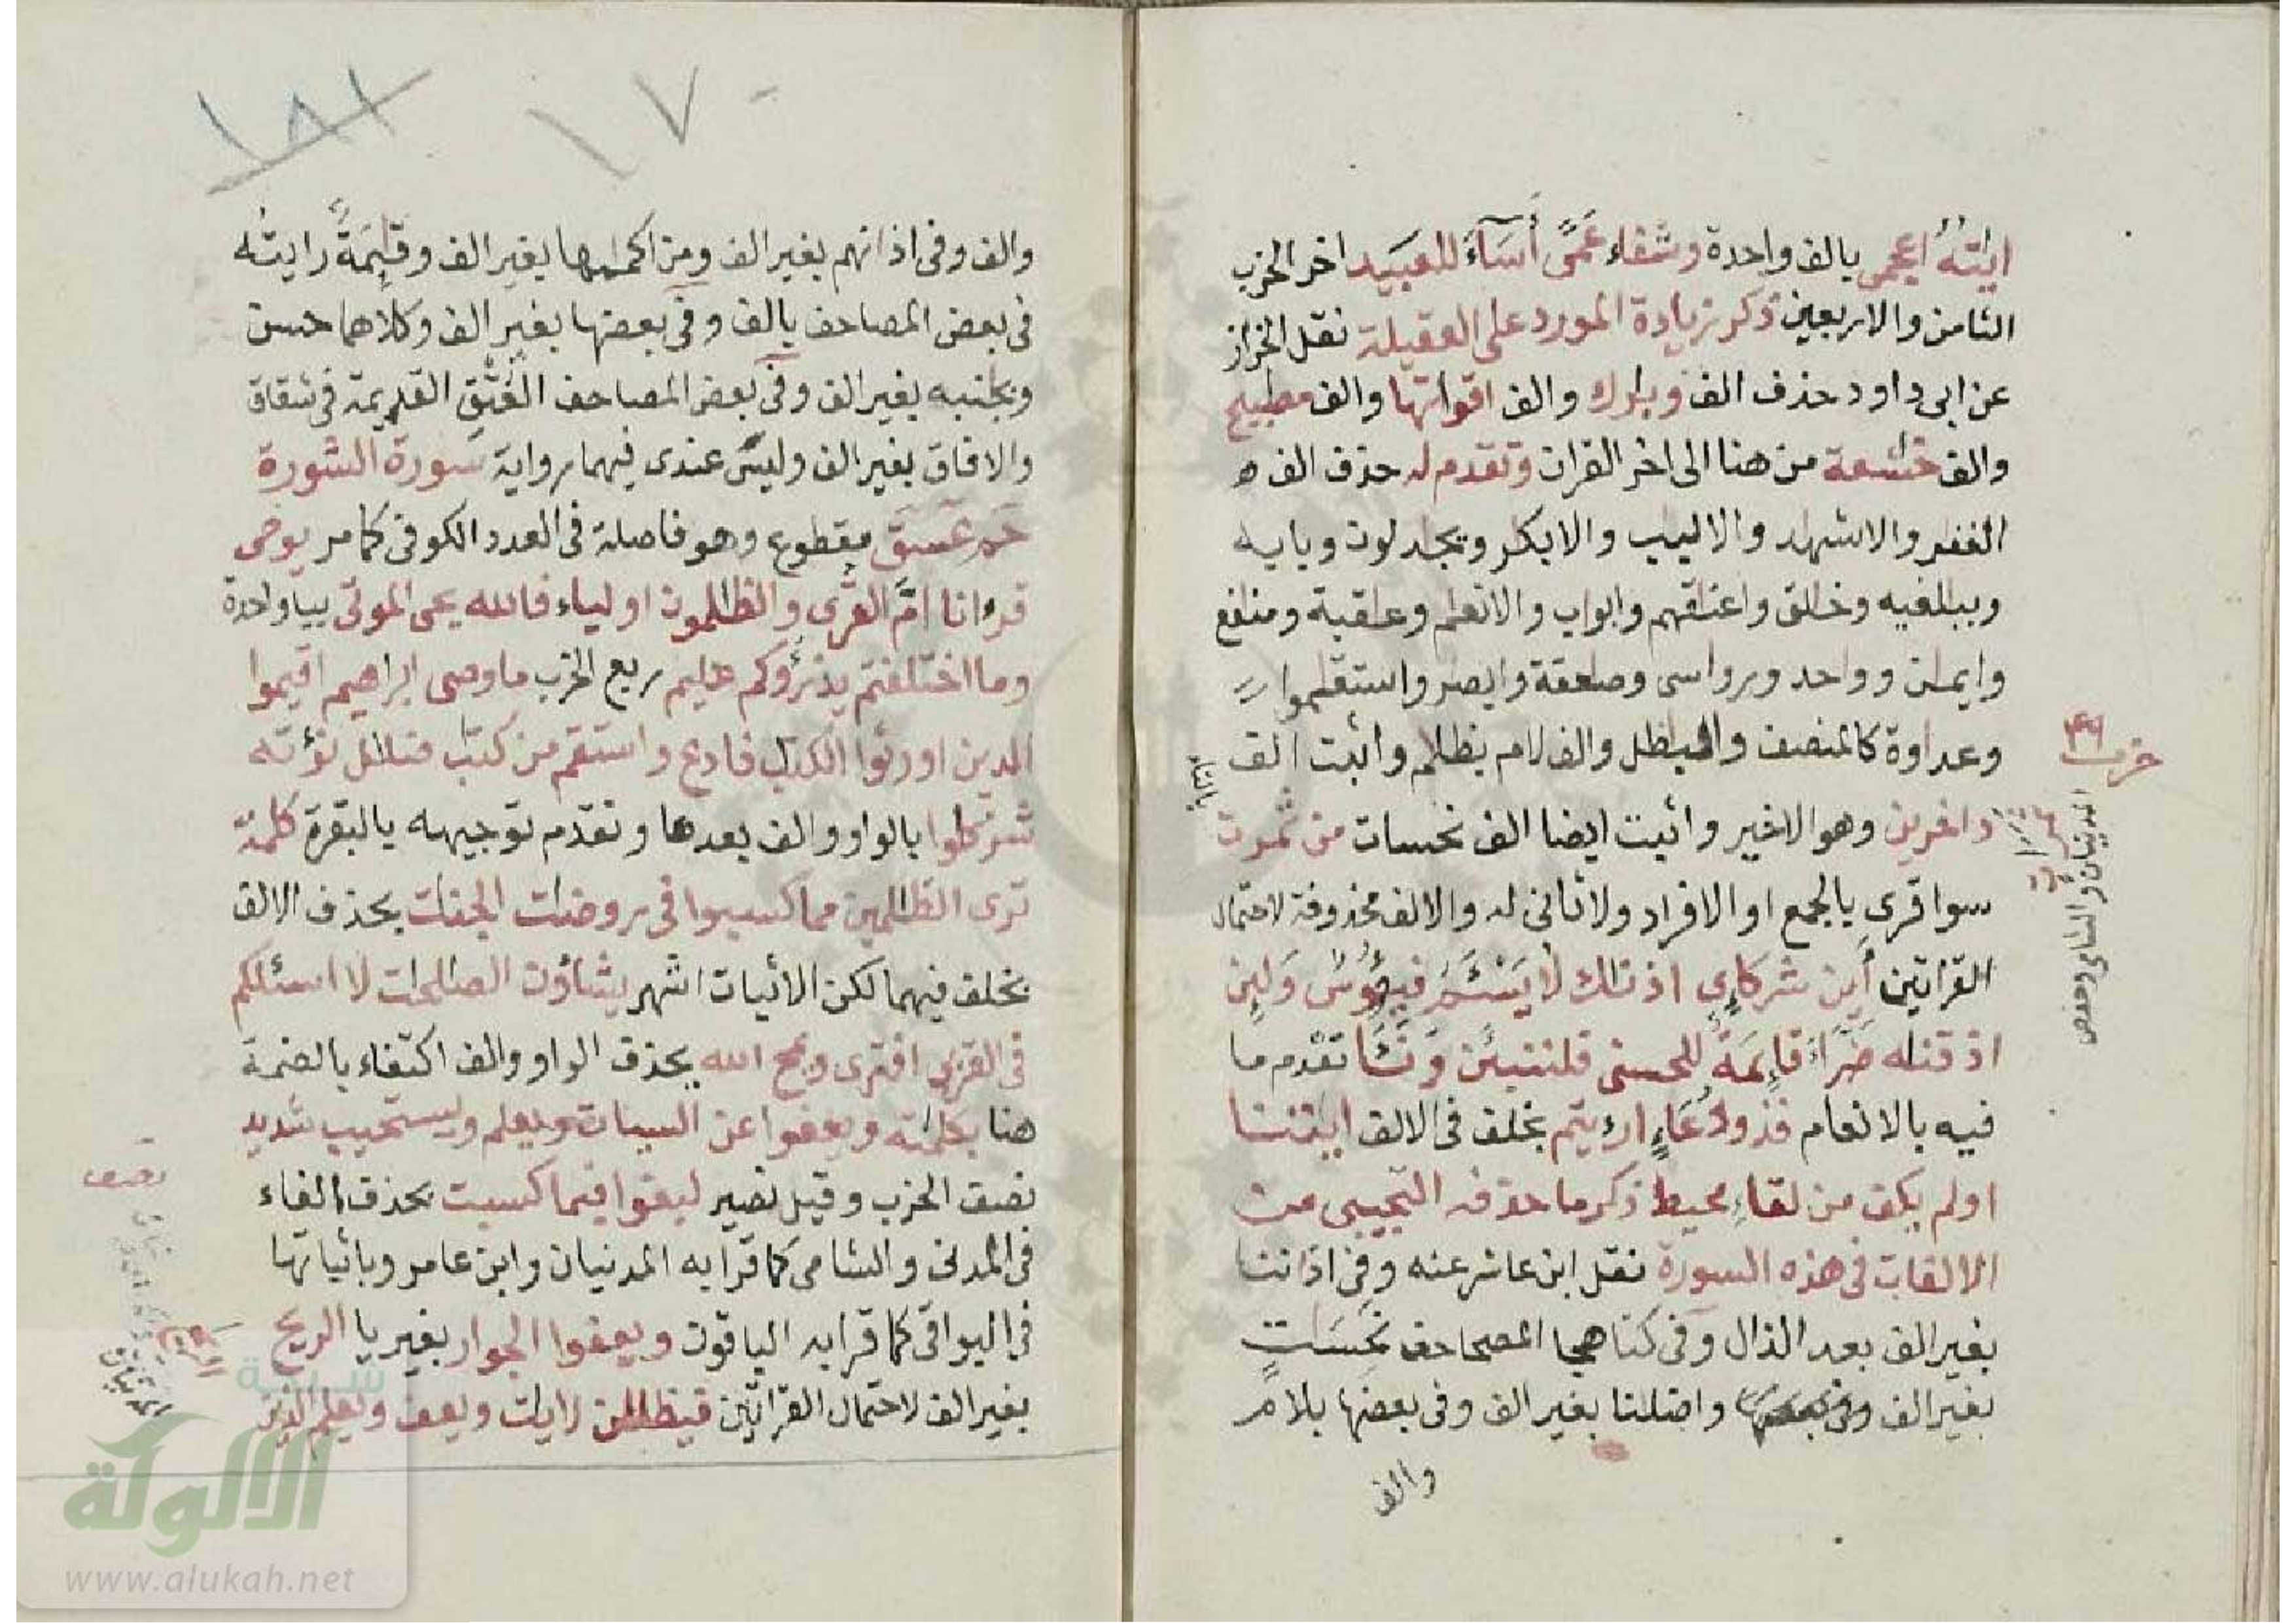 ايٰته اعجمى بالف واحدة وشفاء عمًى أساء للعبيد اخر الحزب
الثامن والاربعين ذكر زيادة المورد على العقيلة نقل الخراز
عن ابى داود حذف الف وبٰرك والف اقوٰتها والف مصٰبيح
والف خٰشعة من هنا الى اخر القران وتقدم له حذف الف ه
الغفٰر والاشهٰد والالبٰب والابكٰر ويجٰدلون وبايٰه
وببٰلغيه وخٰلق واعنٰقهم وابوٰب والانعٰم وعٰقبة ومنٰفع
وايمٰن وواحد ورواسى وصٰعقة وابصٰر واستقٰموا
وعداوة كالمنصف والبٰطل والف لام بظلٰم واثبت الف
داخرين وهو الاخير واثبت ايضا الف نحسات من ثمرت بالتاء
سوا قرى بالجمع او الافراد ولا ثانى له والالف محذوفة لاحتمال
القراتين أين شركاءى اذنٰك لا يسئم فيئوس ولئن
اذقنٰه ضراء قائمة للحسنى فلننبئن ونئا تقدم ما
فيه بالانعام فذو دعاء ارءيتم بخلف فى الالف ايٰتنا
اولم يكف من لقاء محيط ذكر ما حذفه التجيبى من
الالفات فى هذه السورة نقل ابن عاشر عنه وفى اذاننا
بغير الف بعد الذال وفى كتاب هجا المصاحف نحسات
بغير الف واضلنا بغير الف وفى بعضها بلام
والف
حزب ٤٩
المدنيان والشامى وحفص
والف وفى اذانهم بغير الف ومن اكمامها بغير الف وقائمة رايته
فى بعض المصاحف بالف وفى بعضها بغير الف وكلاهما حسن
وبجانبه بغير الف وفى بعض المصاحف العتق القديمة فى شقاق
والافاق بغير الف وليس عندى فيهما رواية سورة الشورة
حم عسق مقطوع وهو فاصلة فى العدد الكوفى كما مر يوحى
قرءانا ام القرى والظٰلمون اولياء فالله يحى الموتى بيا واحدة
وما اختلفتم يذرؤكم عليم ربع الحزب ما وصى ابرٰهيم اقيموا
الدين اورثوا الكتٰب فادع واستقم من كتٰب ضلٰل نؤته
شركٰؤا بالواو والف بعدها وتقدم توجيهه بالبقرة كلمة
ترى الظٰلمين مما كسبوا فى روضات الجنات بحذف الالف
بخلف فيهما لكن الاثبات اشهر يشاؤن الصٰلحٰت لا اسئلكم
فى القربى افترى ويمح الله بحذف الواو والف اكتفاء بالضمة
هنا بكلمٰته ويعفوا عن السيات ويعلم ويستجيب شديد
نصف الحزب وقيل نصير لبغوا فبما كسبت بحذف الفاء
فى المدنى والشامى كما قرا به المدنيان وابن عامر وباثباتها
فى البواقى كما قرا به الباقون ويعفوا الجوار بغير يا الريح
بغير الف لاحتمال القراتين فيظللن لايٰت ويعف ويعلم الذين
نصف
الالوكة
www.alukah.net